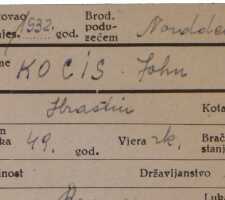 ovao
jes. 1932. god. Brod. podu-zećem Nordde
me KOCIS John
Hrastin Kota
ka 49. god. Vjera rk. Brač stanj
nost Državljanstvo